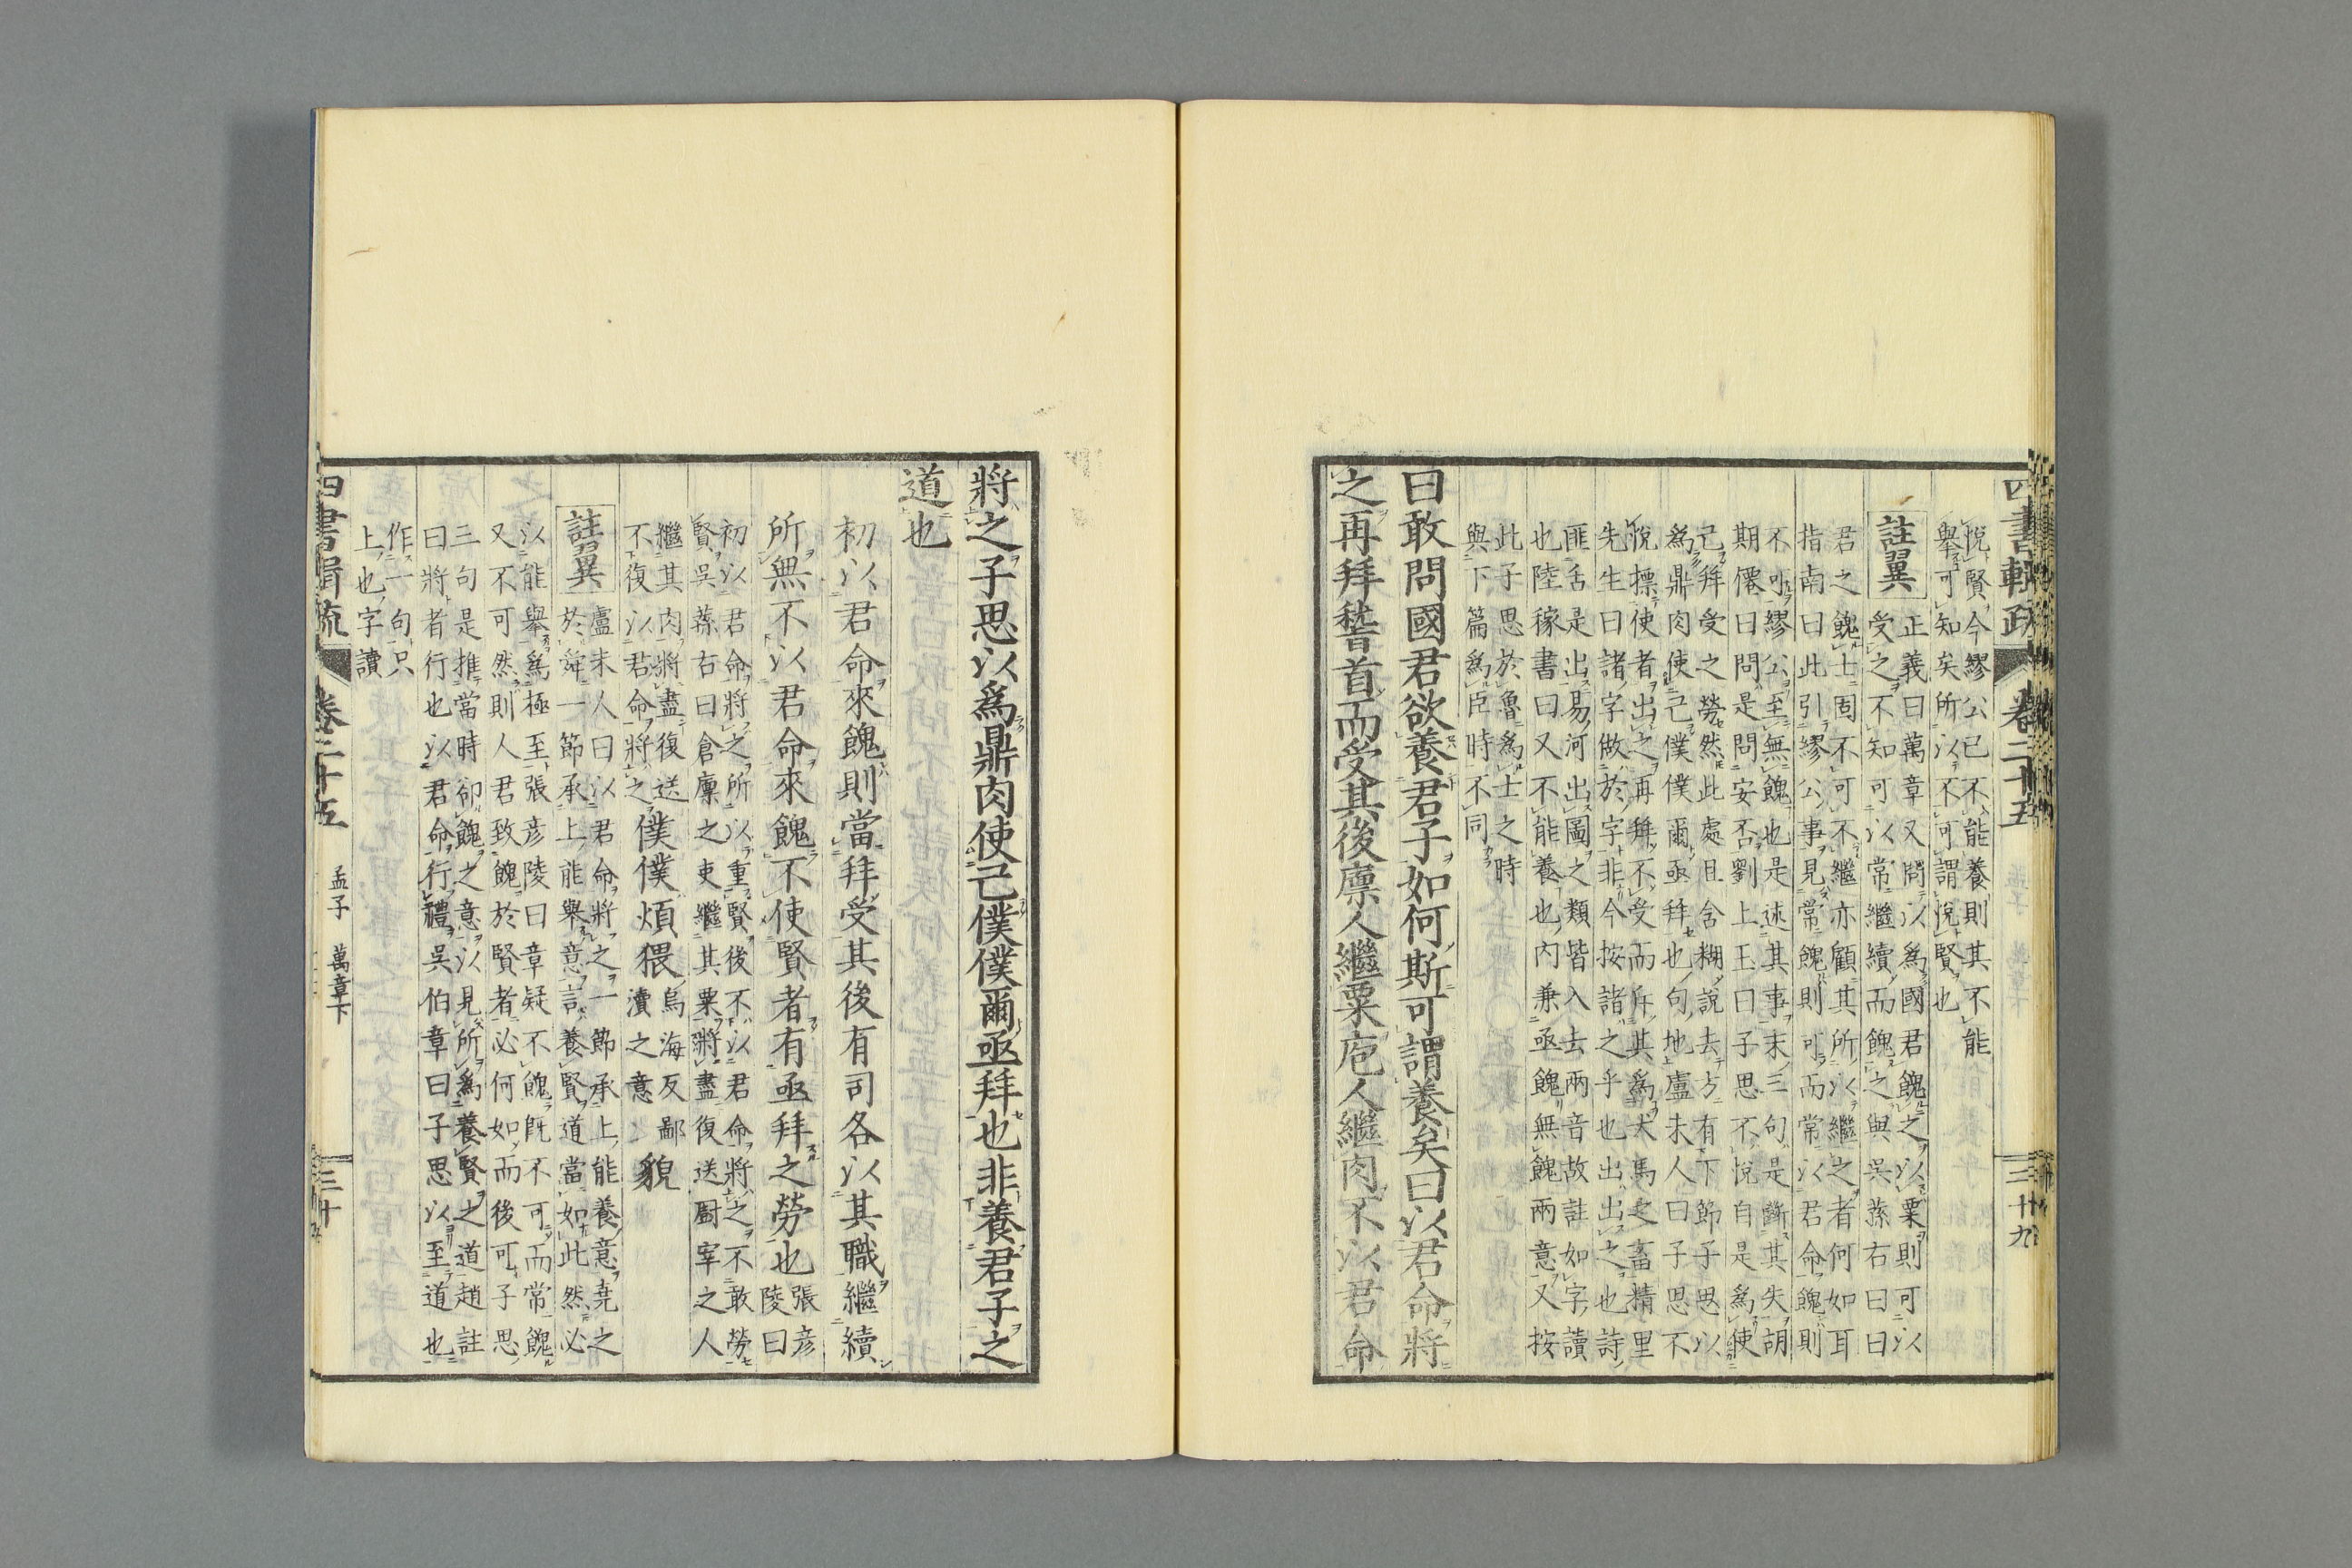 四書輯疏
卷二十五
三十九
悅賢今繆公已不能養則其不能
舉可知矣所以不可謂悅賢也
註翼
正義曰萬章又問以爲國君餽之以粟則可以
受之不知可以常繼續而餽之與吳蓀右曰曰
君之餽士固不可不繼亦顧其所以繼之者何如耳
指南曰此引繆公事見常餽則可而常以君命餽則
不可繆公至無餽也是述其事末三句是斷其失胡
期僊曰問是問安否劉上玉曰子思不悅自是爲使
己拜受之勞然此處且含糊說去方有下節子思以
爲鼎肉使己僕僕爾亟拜也句地盧未人曰子思不
悅摽使者出之再拜不受而斥其爲犬馬之畜精里
先生曰諸字做於字非今按諸之乎也出出之也詩
匪舌是出易河出圖之類皆入去兩音故註如字讀
也陸稼書曰又不能養也內兼亟餽無餽兩意又按
此子思於魯爲士之時
與下篇爲臣時不同
曰敢問國君欲養君子如何斯可謂養矣曰以君命將
之再拜稽首而受其後廩人繼粟庖人繼肉不以君命
將之子思以爲鼎肉使己僕僕爾亟拜也非養君子之
道也
初以君命來餽則當拜受其後有司各以其職繼續
所無不以君命來餽不使賢者有亟拜之勞也張彦
陵曰
初以君命將之所以重賢後不以君命將之不敢勞
賢吳蓀右曰倉廩之吏繼其粟將盡復送廚宰之人
繼其肉將盡復送
不復以君命將之
僕僕煩猥烏海反鄙
瀆之意
貌
註翼
盧未人曰以君命將之一節承上能養意堯之
於舜一節承上能舉意言養賢道當如此然必
以能舉爲極至張彦陵曰章疑不餽旣不可而常餽
又不可然則人君致餽於賢者必何如而後可子思
三句是推當時卻餽之意以見所爲養賢之道趙註
曰將者行也以君命行禮吳伯章曰子思以至道也
作一句只
上也字讀
四書輯疏
卷二十五
孟子
萬章下
三十